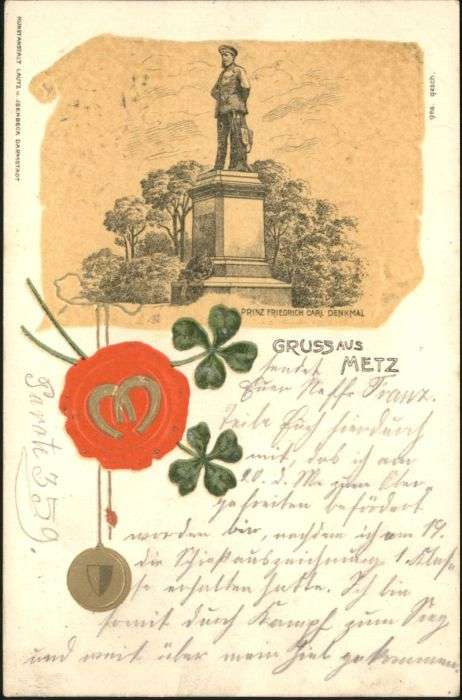 KUNSTANSTALT LAUTZ u. ISENBECK DARMSTADT
ges. gesch.
PRINZ FRIEDRICH CARL DENKMAL
GRUSS AUS
METZ
sendet
Euer Neffe Franz.
Teile Euch hierdurch
mit, das ich am
20. d. Ms zum Ober-
gefreiten befördert
worden bin, nachdem ich am 19.
die Schießauszeichnung 1. Klas-
se erhalten hatte. Ich bin
somit durch Kampf zum Sieg
und weit über mein Ziel gekommen.
359.